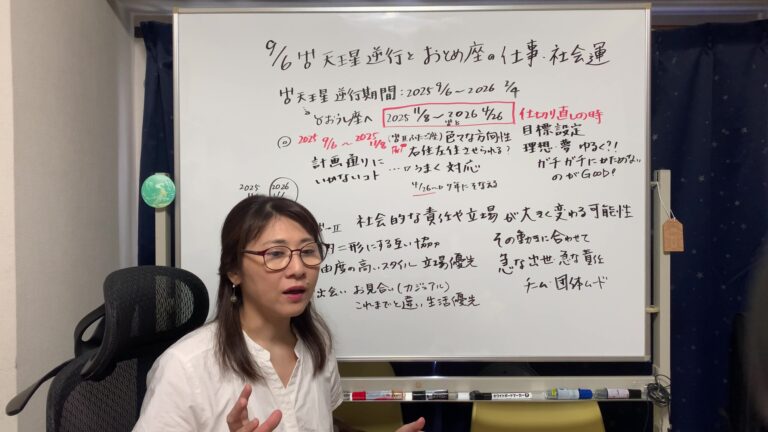 9/6 ♅ 天王星逆行とおとめ座の仕事・社会運
♅天王星逆行期間：2025 9/6〜2026 2/4
おうし座へ 2025 11/8〜2026 4/26 仕切り直しの時
2025 9/6〜2025 11/8 色々な方向性 目標設定
右往左往させられる？ 理想・夢 ゆるく？！
計画通りに ガチガチにかためない
いかないコト …うまく対応 のがGOOD！
2025 2026
社会的な責任や立場が大きく変わる可能性
形にする 互い 協力 その動きに合わせて
由度の高いスタイル 立場優先 急な出世・急な責任
出会い お見合い(カジュアル) チーム・団体ムード
これまでと違い 生活優先
ホワイトボードマーカー